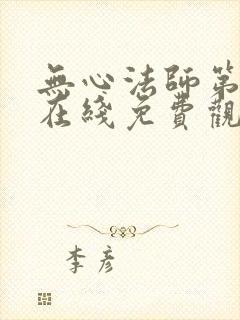 無心法師第
在綫免費觀
李彦